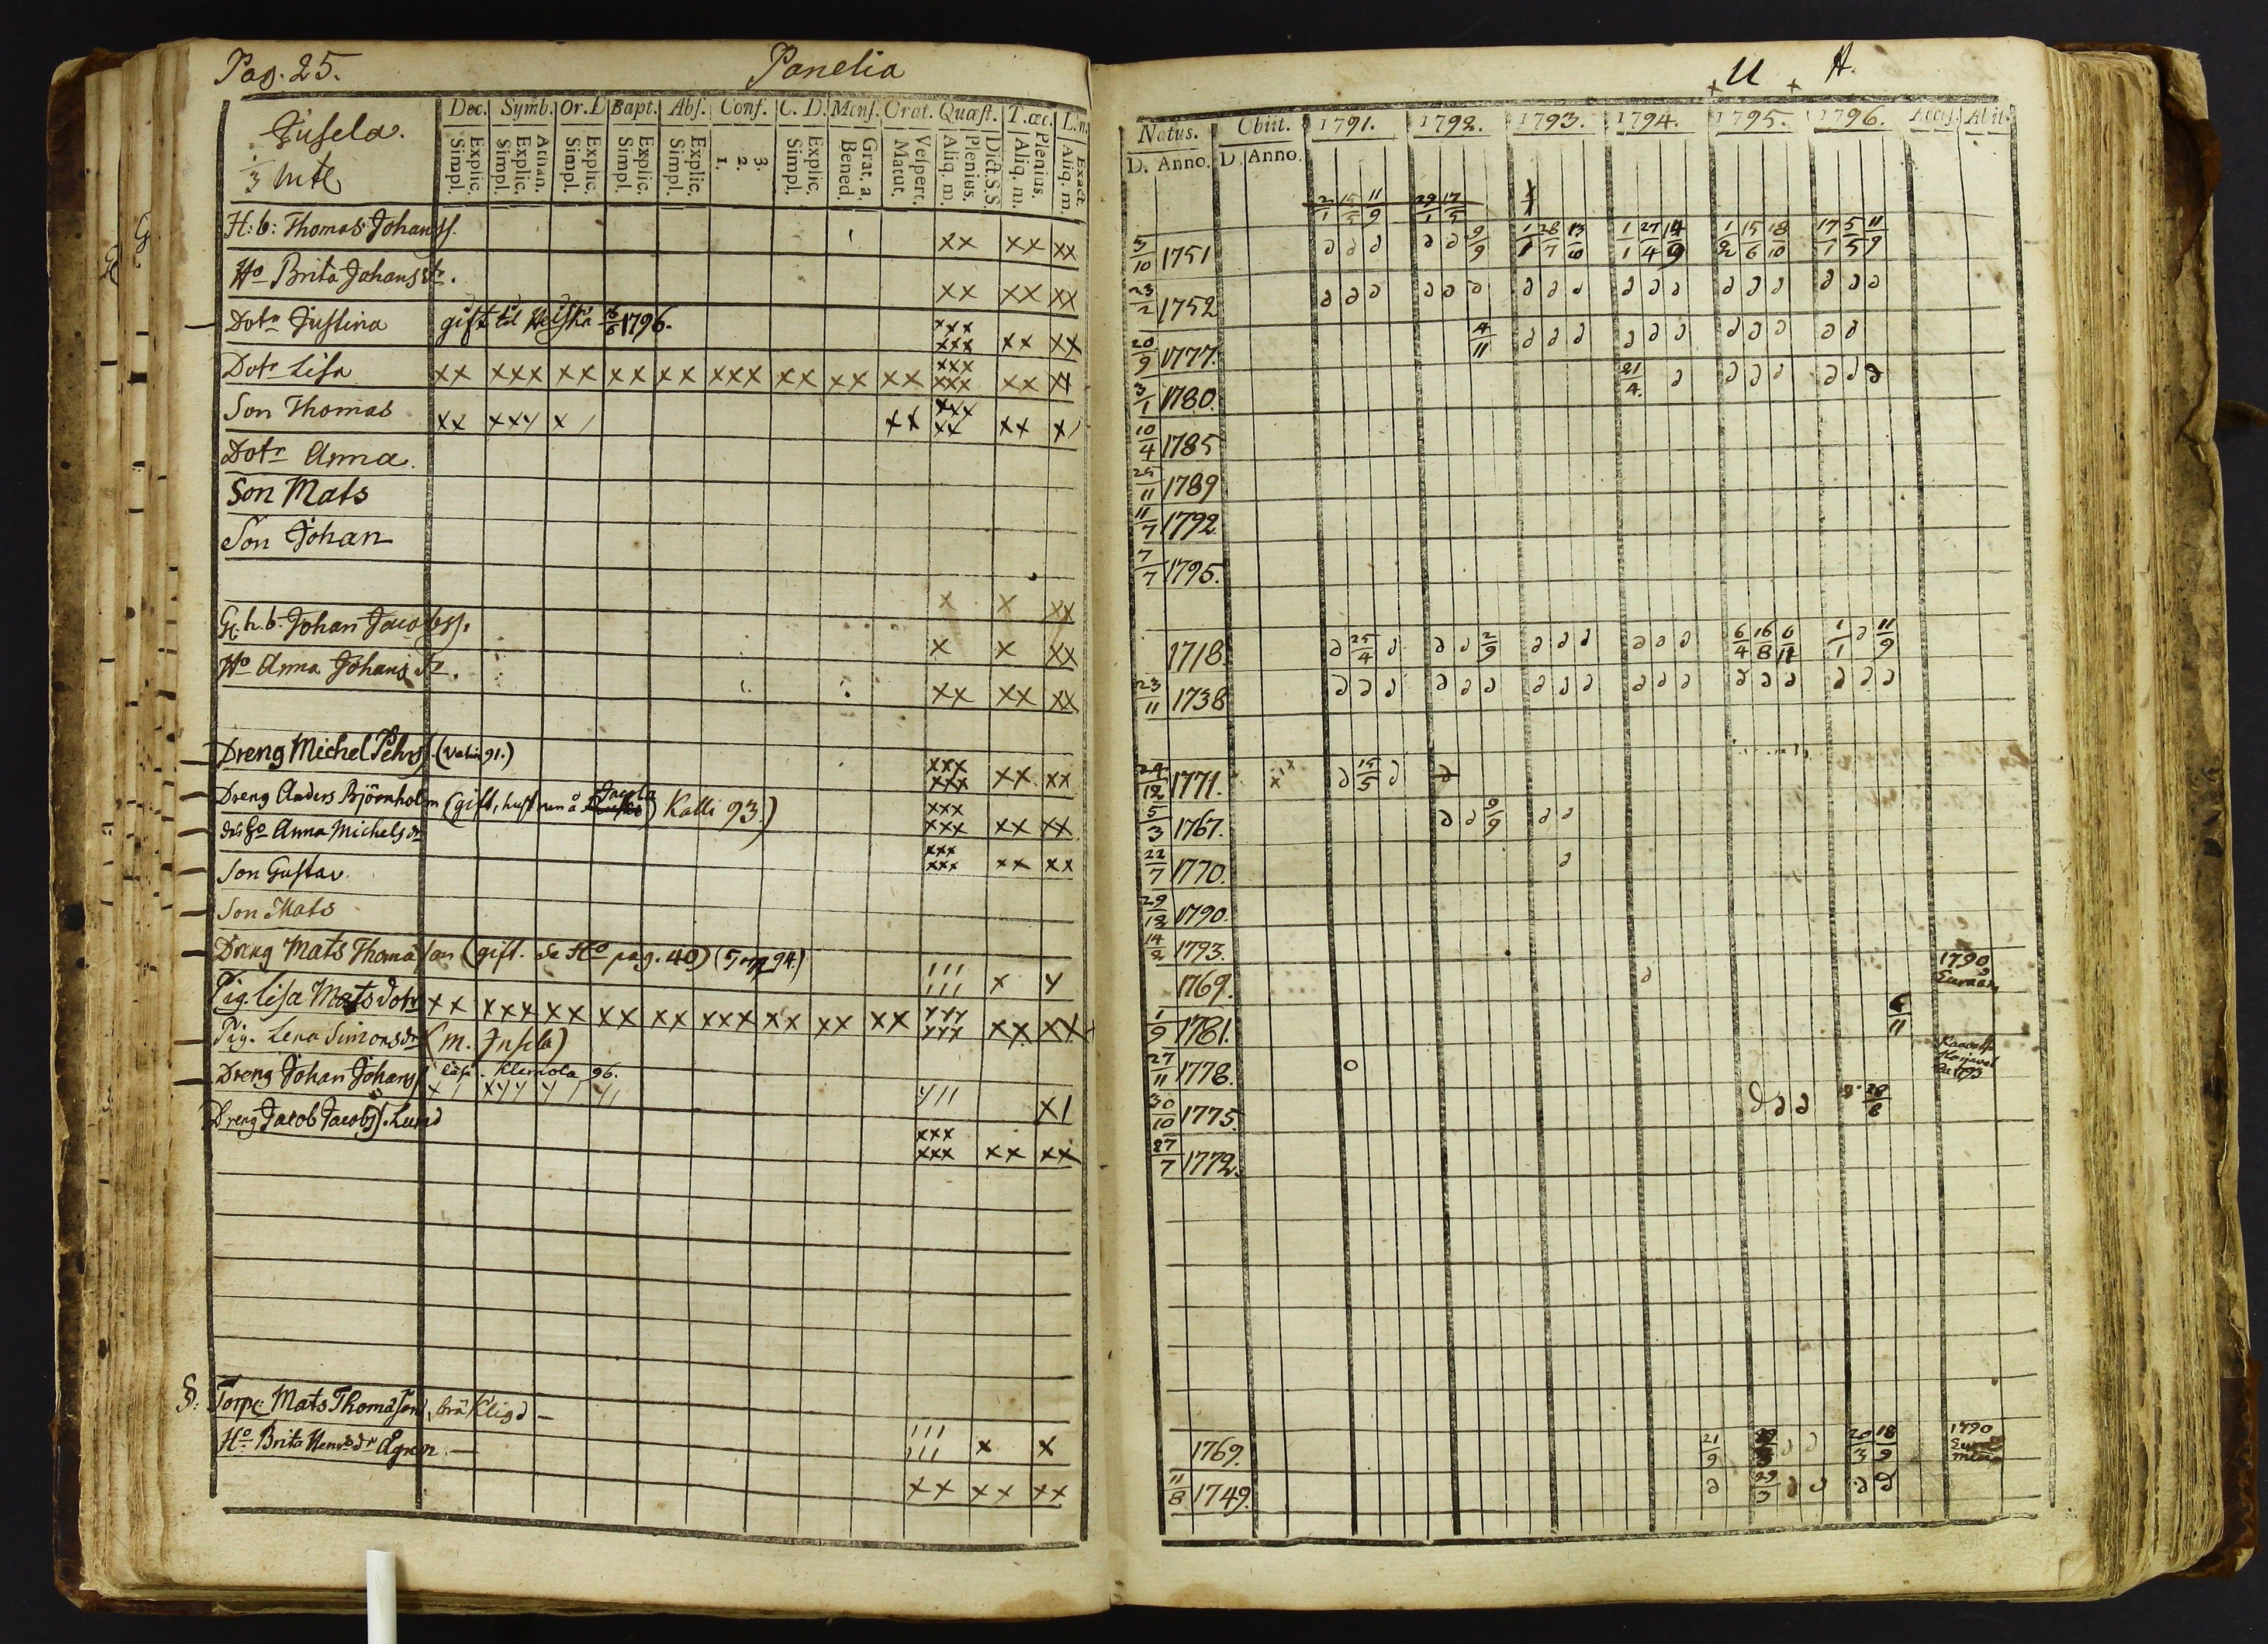 Pag. 25. Panelia
Jusela. Dec. Symb. Or. D Bapt. Abs. Conf. C. D. Mens. Orat. Quæst. T. æc. L. n.
Explic. Simpl. Athan. Explic. Simpl. Explic. Simpl. Explic. Simpl. Explic. Simpl. 3. 2. 1. Explic. Simpl. Grat. a. Bened. Vespert. Matut. Dict. S.S. Plenius. Aliq. m. Plenius. Aliq. m. Exact. Aliq. m.
1/3 mtl
H: b: Thomas Johanss. xx xx xx
Ho Brita Johansdr. xx xx xx
Dotr Justina gift til Heiskå 16/6 1796. xxx xxx xx xx
Dotr Lisa xx xxx xx xx xx xxx xx xx xx xxx xxx xx xx
Son Thomas xx xxy x / xx xxx xx xx x/
Dotr Anna.
Son Mats
Son Johan
x x xx
G. h. b. Johan Jacobss. x x xx
Ho Anna Johansdr. xx xx xx
Dreng Michel Pehrss. xxx xxx xx xx
Dreng Anders Björnholm (gift, hustrun å Jacola) Kalli 93.) xxx xxx xx xx
des Ho Anna Michelsdr xxx xxx xx xx
Son Gustav
Son Mats
Dreng Mats Thomasson (gift. se Ho pag. 40) (Torp 94.) 111 111 x y
Pig. Lisa Matsdotr xx xxx xx xx xx xxx xx xx xx yyy yyy xx xx
Pig. Lena Simonsdr (m. Jusela)
Dreng Johan Johanss. Klemola 96. x/ xyy y/ y/ y11 x1
Dreng Jacob Jacobss. Lund xxx xxx xx xx
S: Torp: Mats Thomasson, bräklig d – 111 111 x x
Ho Brita Henrsdr Ågren. – xx xx xx
U H.
Natus. Obiit. 1791. 1792. 1793. 1794. 1795. 1796. Access. Abit.
D. Anno. D. Anno.
2/1 15/5 11/9 29/1 17/5
3/10 1751 ∂ ∂ ∂ ∂ ∂ 9/9 1/1 28/7 13/10 1/1 27/4 14/9 1/2 15/6 18/10 17/1 5/5 11/9
23/2 1752 ∂ ∂ ∂ ∂ ∂ ∂ ∂ ∂ ∂ ∂ ∂ ∂ ∂ ∂ ∂ ∂ ∂ ∂
20/9 1777. 4/11 ∂ ∂ ∂ ∂ ∂ ∂ ∂ ∂ ∂ ∂ ∂
3/1 1780. 21/4. ∂ ∂ ∂ ∂ ∂ ∂ ∂
10/4 1785
25/11 1789
11/7 1792.
7/7 1795.
1718. ∂ 25/4 ∂ ∂ ∂ 2/9 ∂ ∂ ∂ ∂ ∂ ∂ 6/4 16/8 6/11 1/1 ∂ 11/9
23/11 1738 ∂ ∂ ∂ ∂ ∂ ∂ ∂ ∂ ∂ ∂ ∂ ∂ ∂ ∂ ∂ ∂ ∂ ∂
24/12 1771. ∂ 15/5 ∂ ∂
5/3 1767. ∂ ∂ 9/9 ∂ ∂
22/7 1770. ∂
29/12 1790.
14/2 1793.
1769. ∂ 1790
1/9 1781. 6/11
27/11 1778. o
30/10 1775. ∂ ∂ ∂ 28/8
27/7 1772.
1769. 21/9 ∂ ∂ 20/3 18/9 1790
11/8 1749. ∂ 29/3 ∂ ∂ ∂ ∂